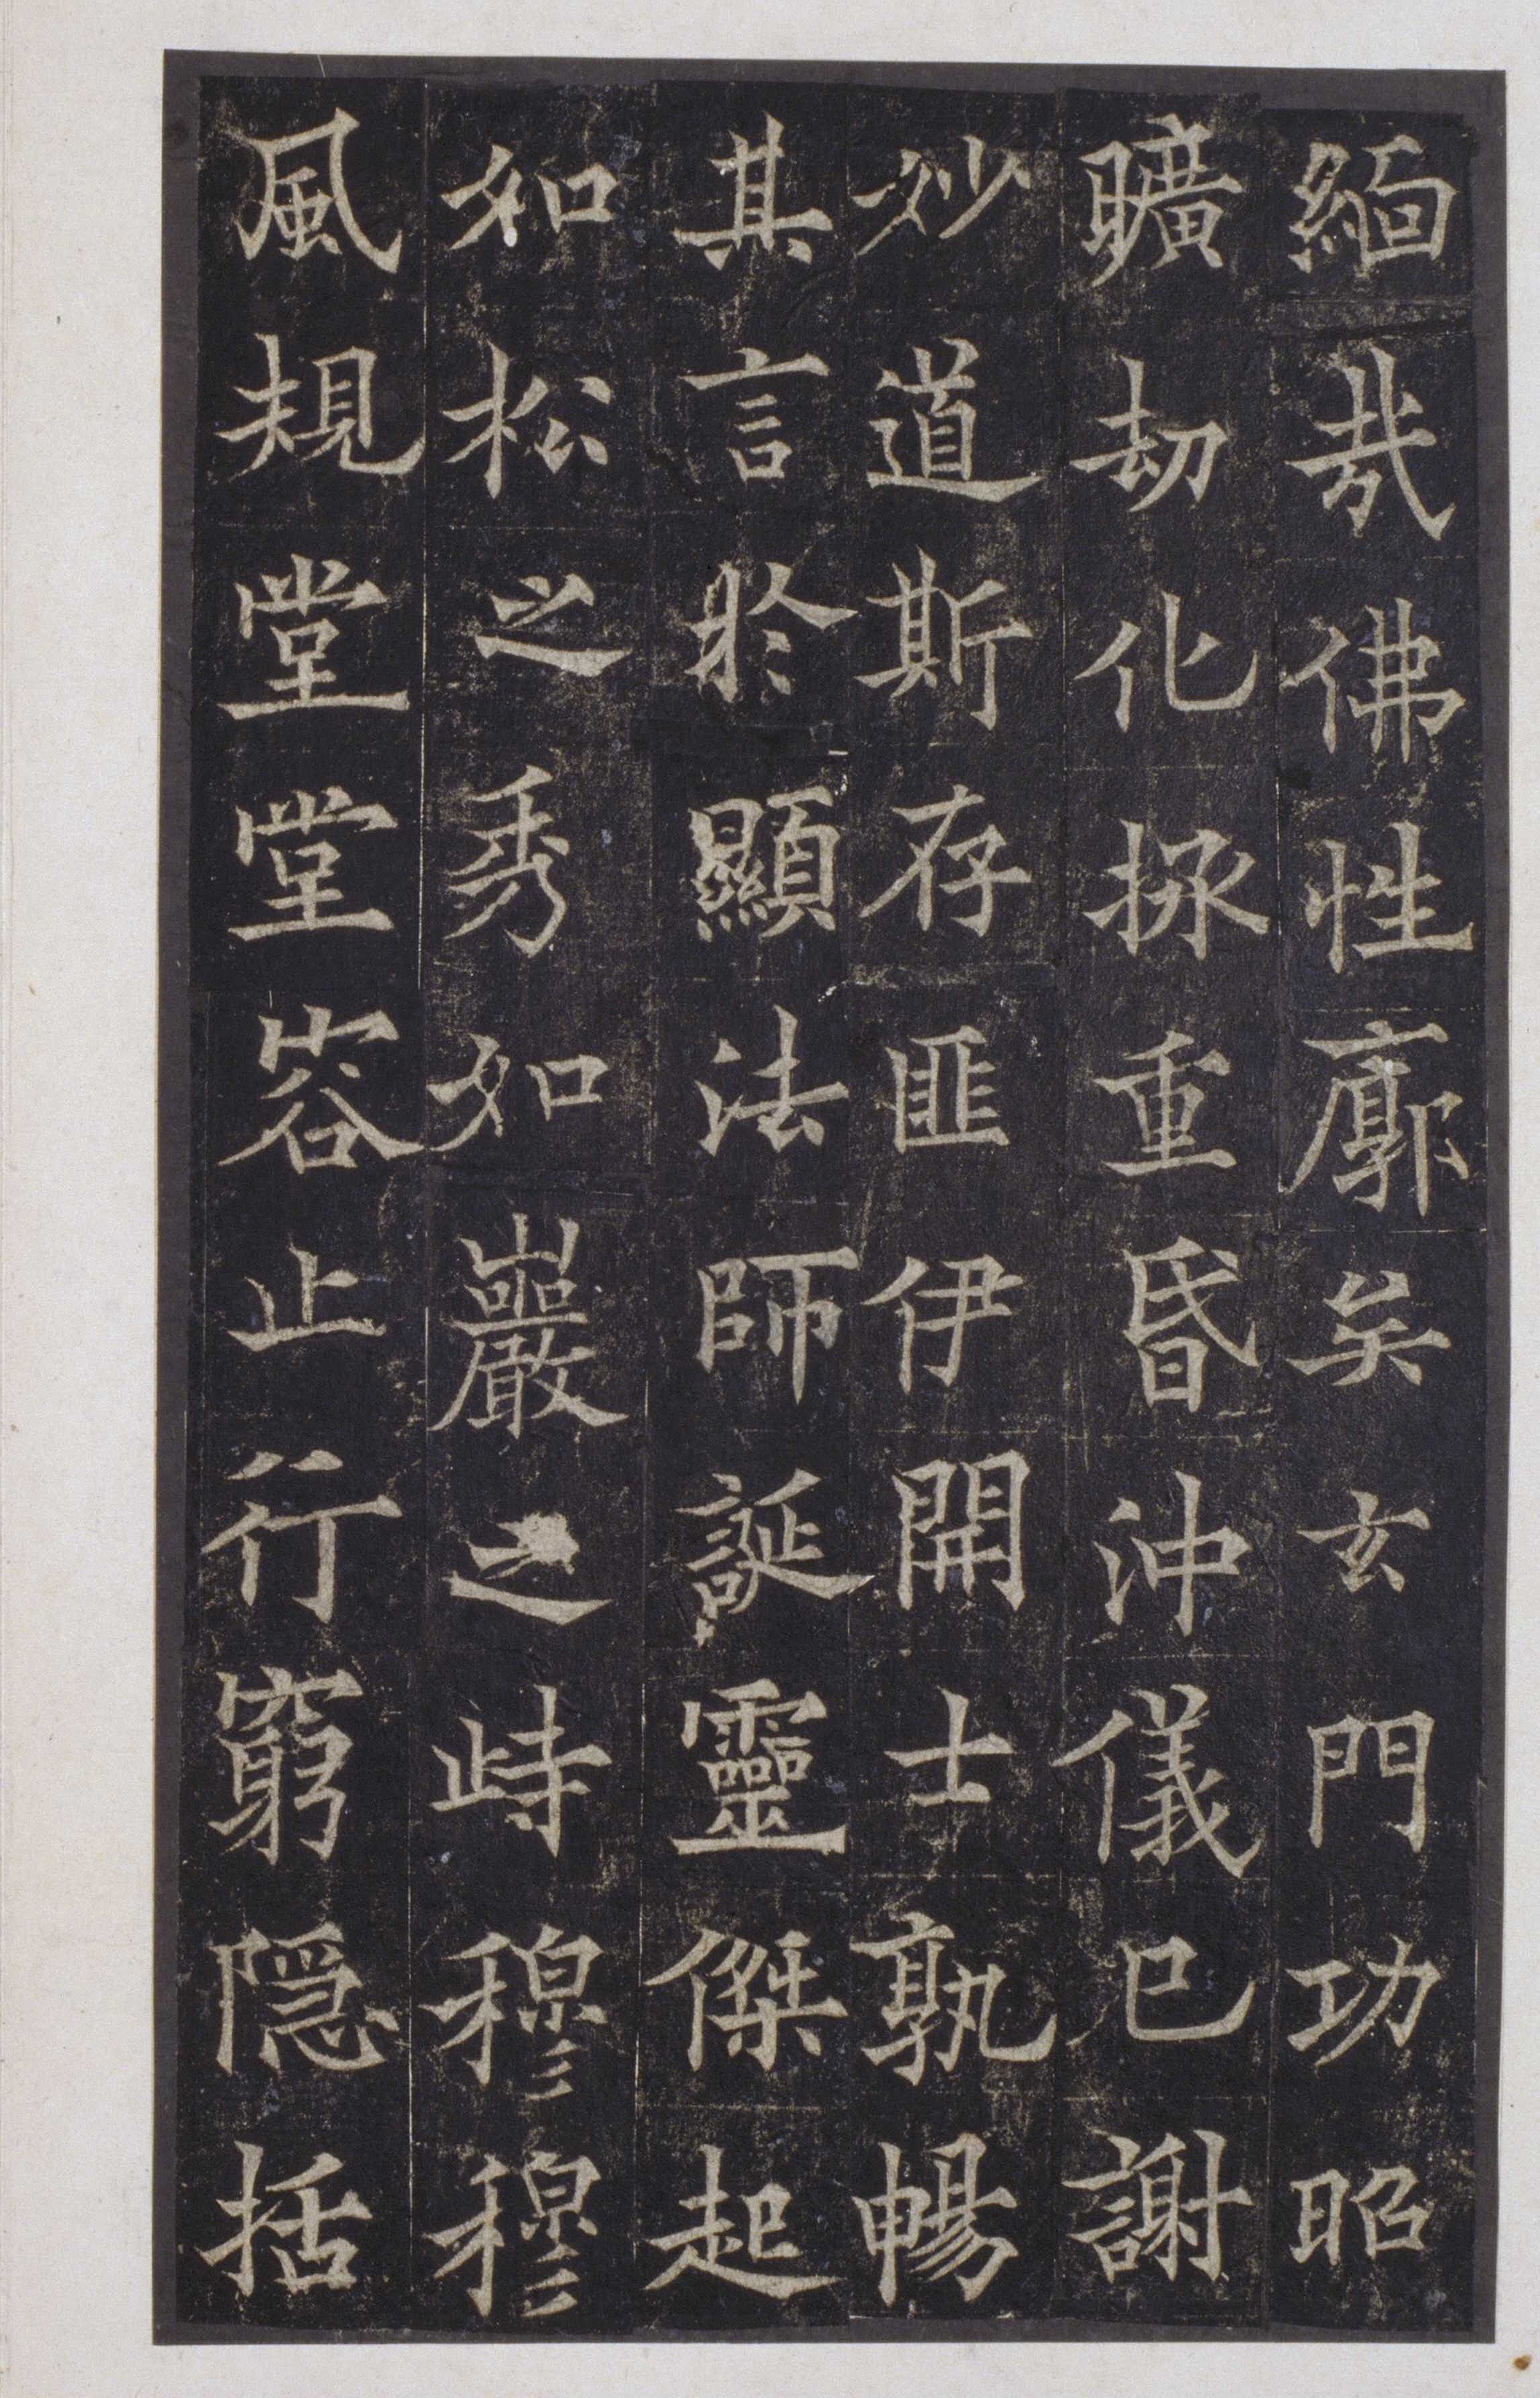 緬哉佛性廓矣玄門功昭
曠劫化拯重昏沖儀已謝
妙道斯存匪伊開士孰暢
其言於顯法師誕靈傑起
如松之秀如巖之峙穆穆
風規堂堂容止行窮隱括